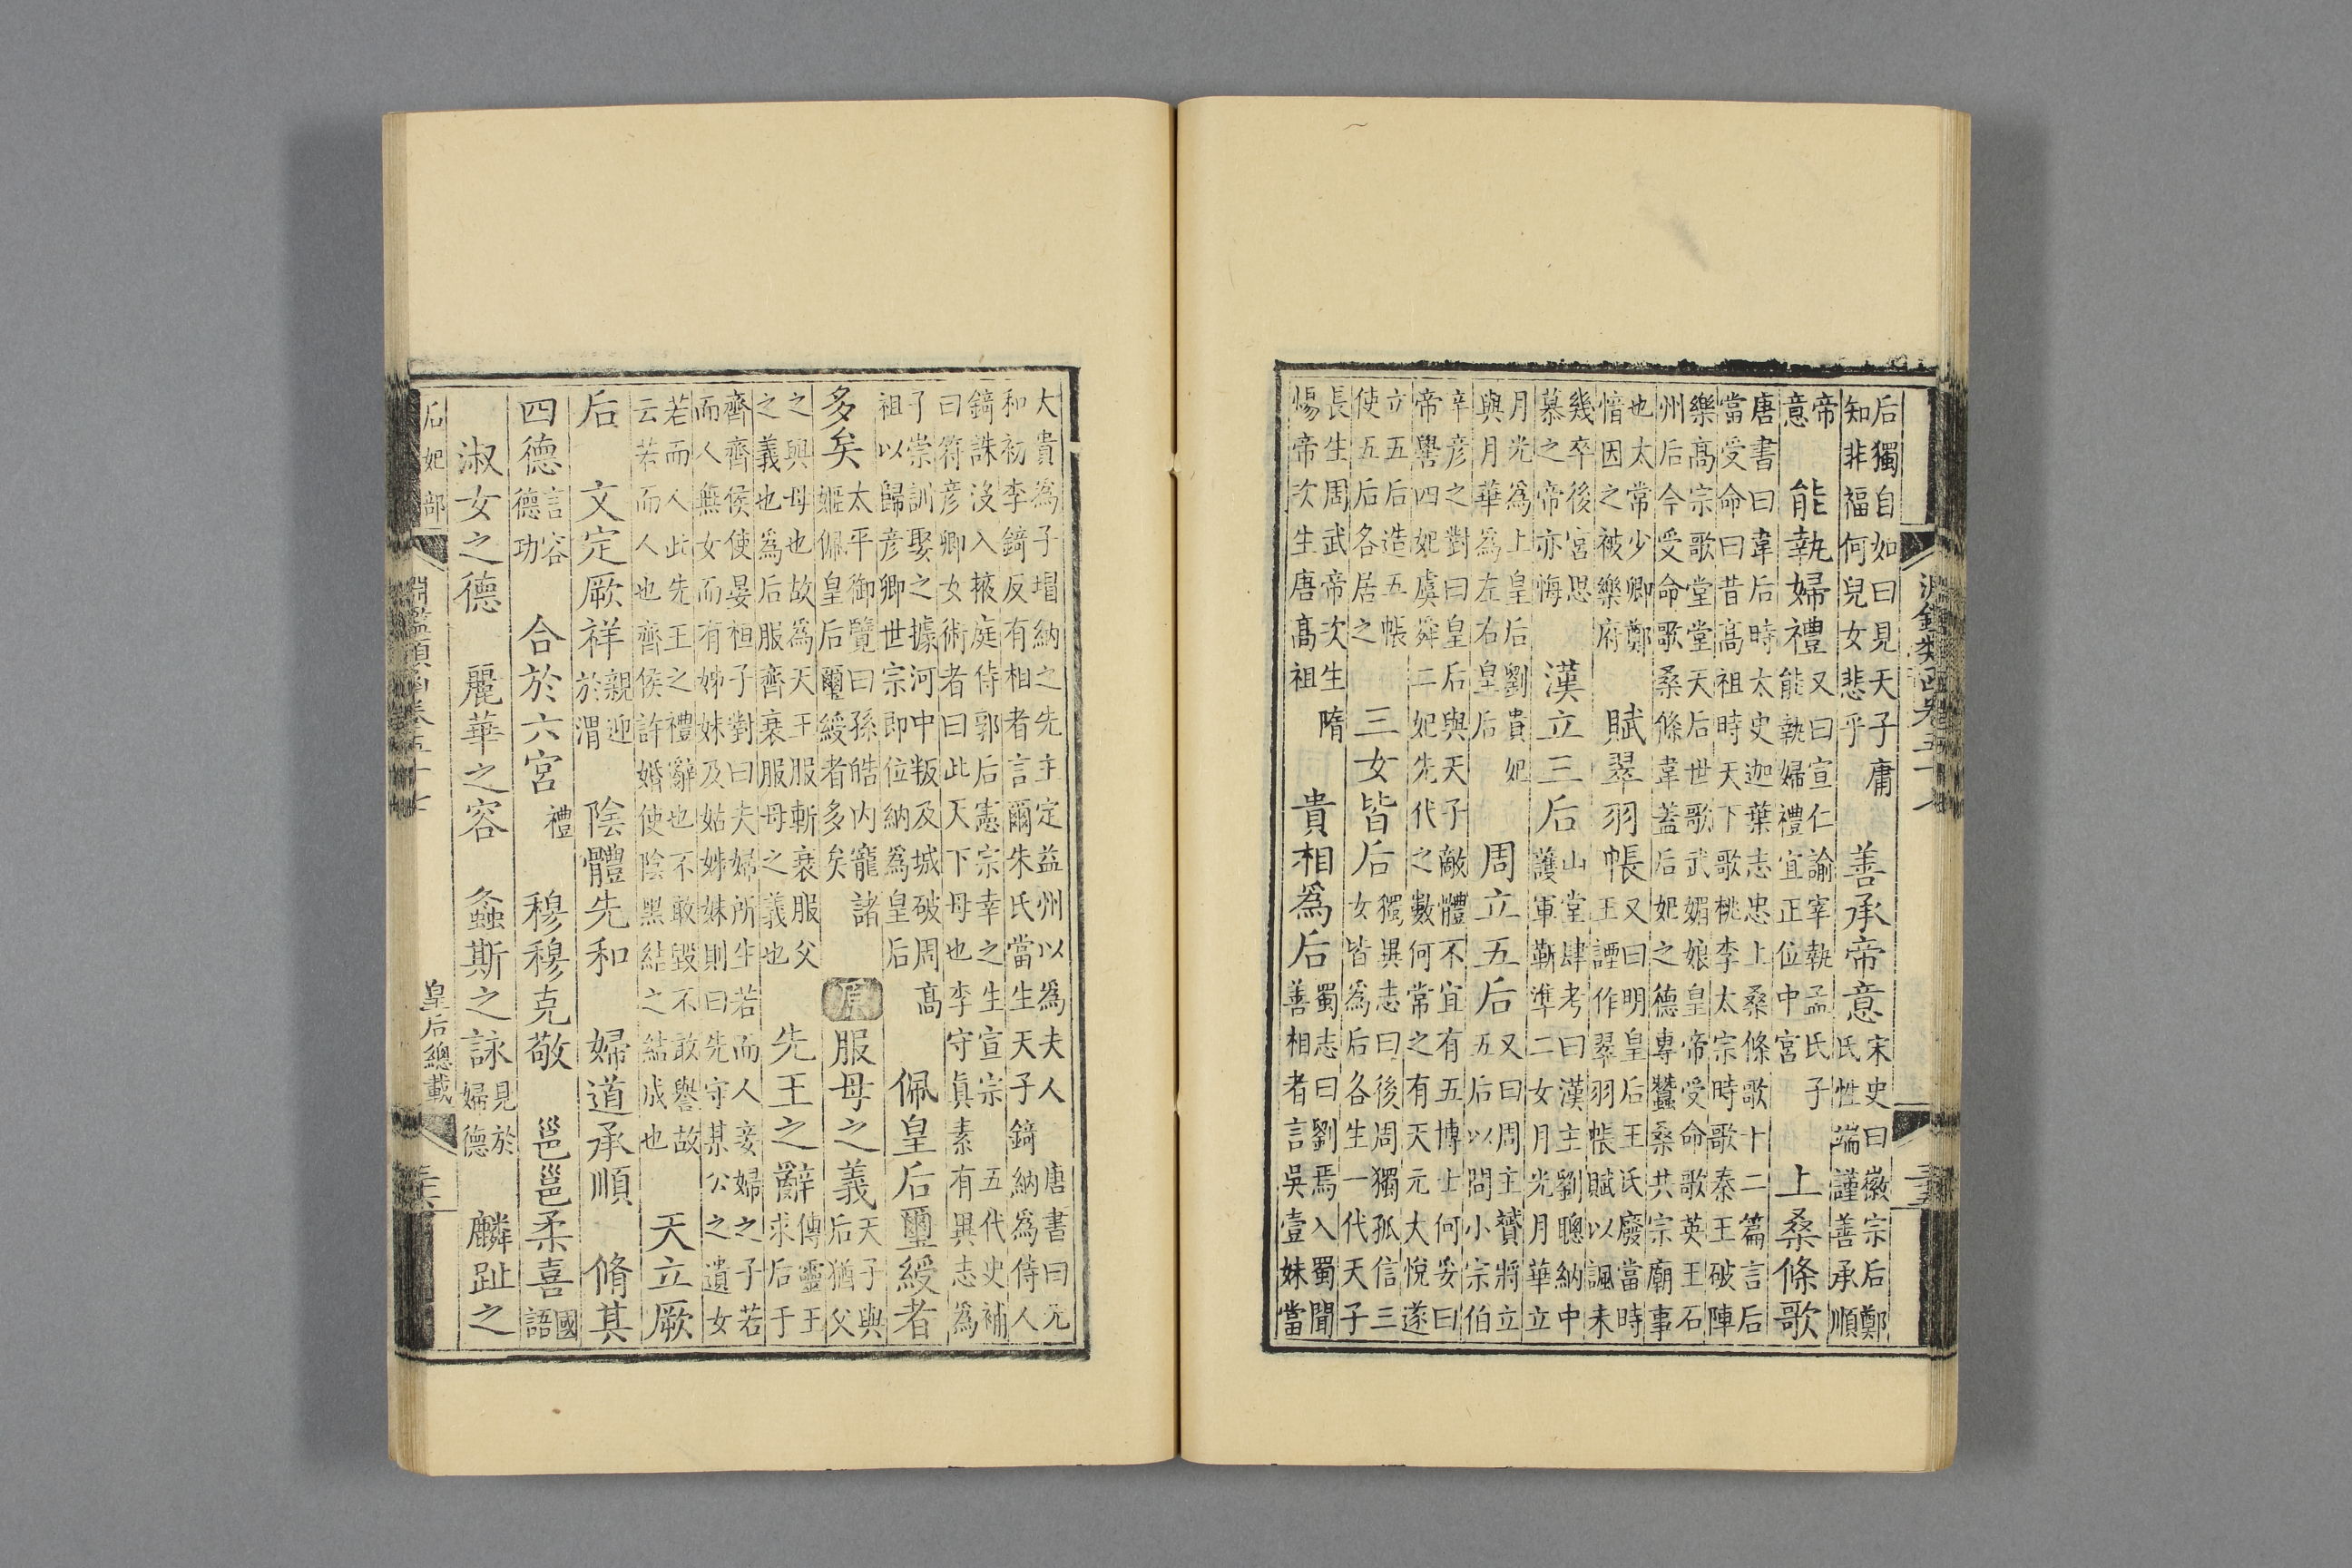 淵鑑類函卷五十七
后獨自如曰見天子庸
知非福何兒女悲乎
善承帝意
宋史曰徽宗后鄭
氏性端謹善承順
帝
意
能執婦禮
又曰宣仁諭宰執孟氏子
能執婦禮宜正位中宮
上桑條歌
唐書曰韋后時太史迦葉志忠上桑條歌十二篇言后
當受命曰昔高祖時天下歌桃李太宗時歌秦王破陣
樂高宗歌堂堂天后世歌武媚娘皇帝受命歌英王石
州后今受命歌桑條韋蓋后妃之德專蠶桑共宗廟事
也太常少卿鄭
愔因之被樂府
賦翠羽帳
又曰明皇后王氏廢當時
王諲作翠羽帳賦以諷未
幾卒後宮思
慕之帝亦悔
漢立三后
山堂肆考曰漢主劉聰納中
護軍靳準二女月光月華立
月光為上皇后劉貴妃
與月華為左右皇后
周立五后
又曰周主贇將立
五后以問小宗伯
辛彥之對曰皇后與天子敵體不宜有五博士何妥曰
帝嚳四妃虞舜二妃先代之數何常之有天元大悅遂
立五后造五帳
使五后各居之
三女皆后
獨異志曰後周獨孤信三
女皆為后各生一代天子
長生周武帝次生隋
煬帝次生唐高祖
貴相為后
蜀志曰劉焉入蜀聞
善相者言吳壹妹當
大貴為子瑁納之先主定益州以為夫人 唐書曰元
和初李錡反有相者言爾朱氏當生天子錡納為侍人
錡誅沒入掖庭侍郭后憲宗幸之生宣宗 五代史補
曰符彥卿女術者曰此天下母也李守貞素有異志為
子崇訓娶之據河中叛及城破周高
祖以歸彥卿世宗即位納為皇后
佩皇后璽綬者
多矣
太平御覽曰孫皓內寵諸
姬佩皇后璽綬者多矣
原
服母之義
天子與
后猶父
之與母也故為天王服斬衰服父
之義也為后服齊衰服母之義也
先王之辭
傳靈王
求后于
齊齊侯使晏桓子對曰夫婦所生若而人妾婦之子若
而人無女而有姊妹及姑姊妹則曰先守某公之遺女
若而人此先王之禮辭也不敢毀不敢譽故
云若而人也齊侯許婚使陰黑結之結成也
天立厥
后 文定厥祥
親迎
於渭
陰體先和 婦道承順 脩其
四德
言容
德功
合於六宮
禮
穆穆克敬 邕邕柔喜
國
語
淑女之德 麗華之容 螽斯之詠
見於
婦德
麟趾之
后妃部 淵鑑類函卷五十七 皇后總載 二十六